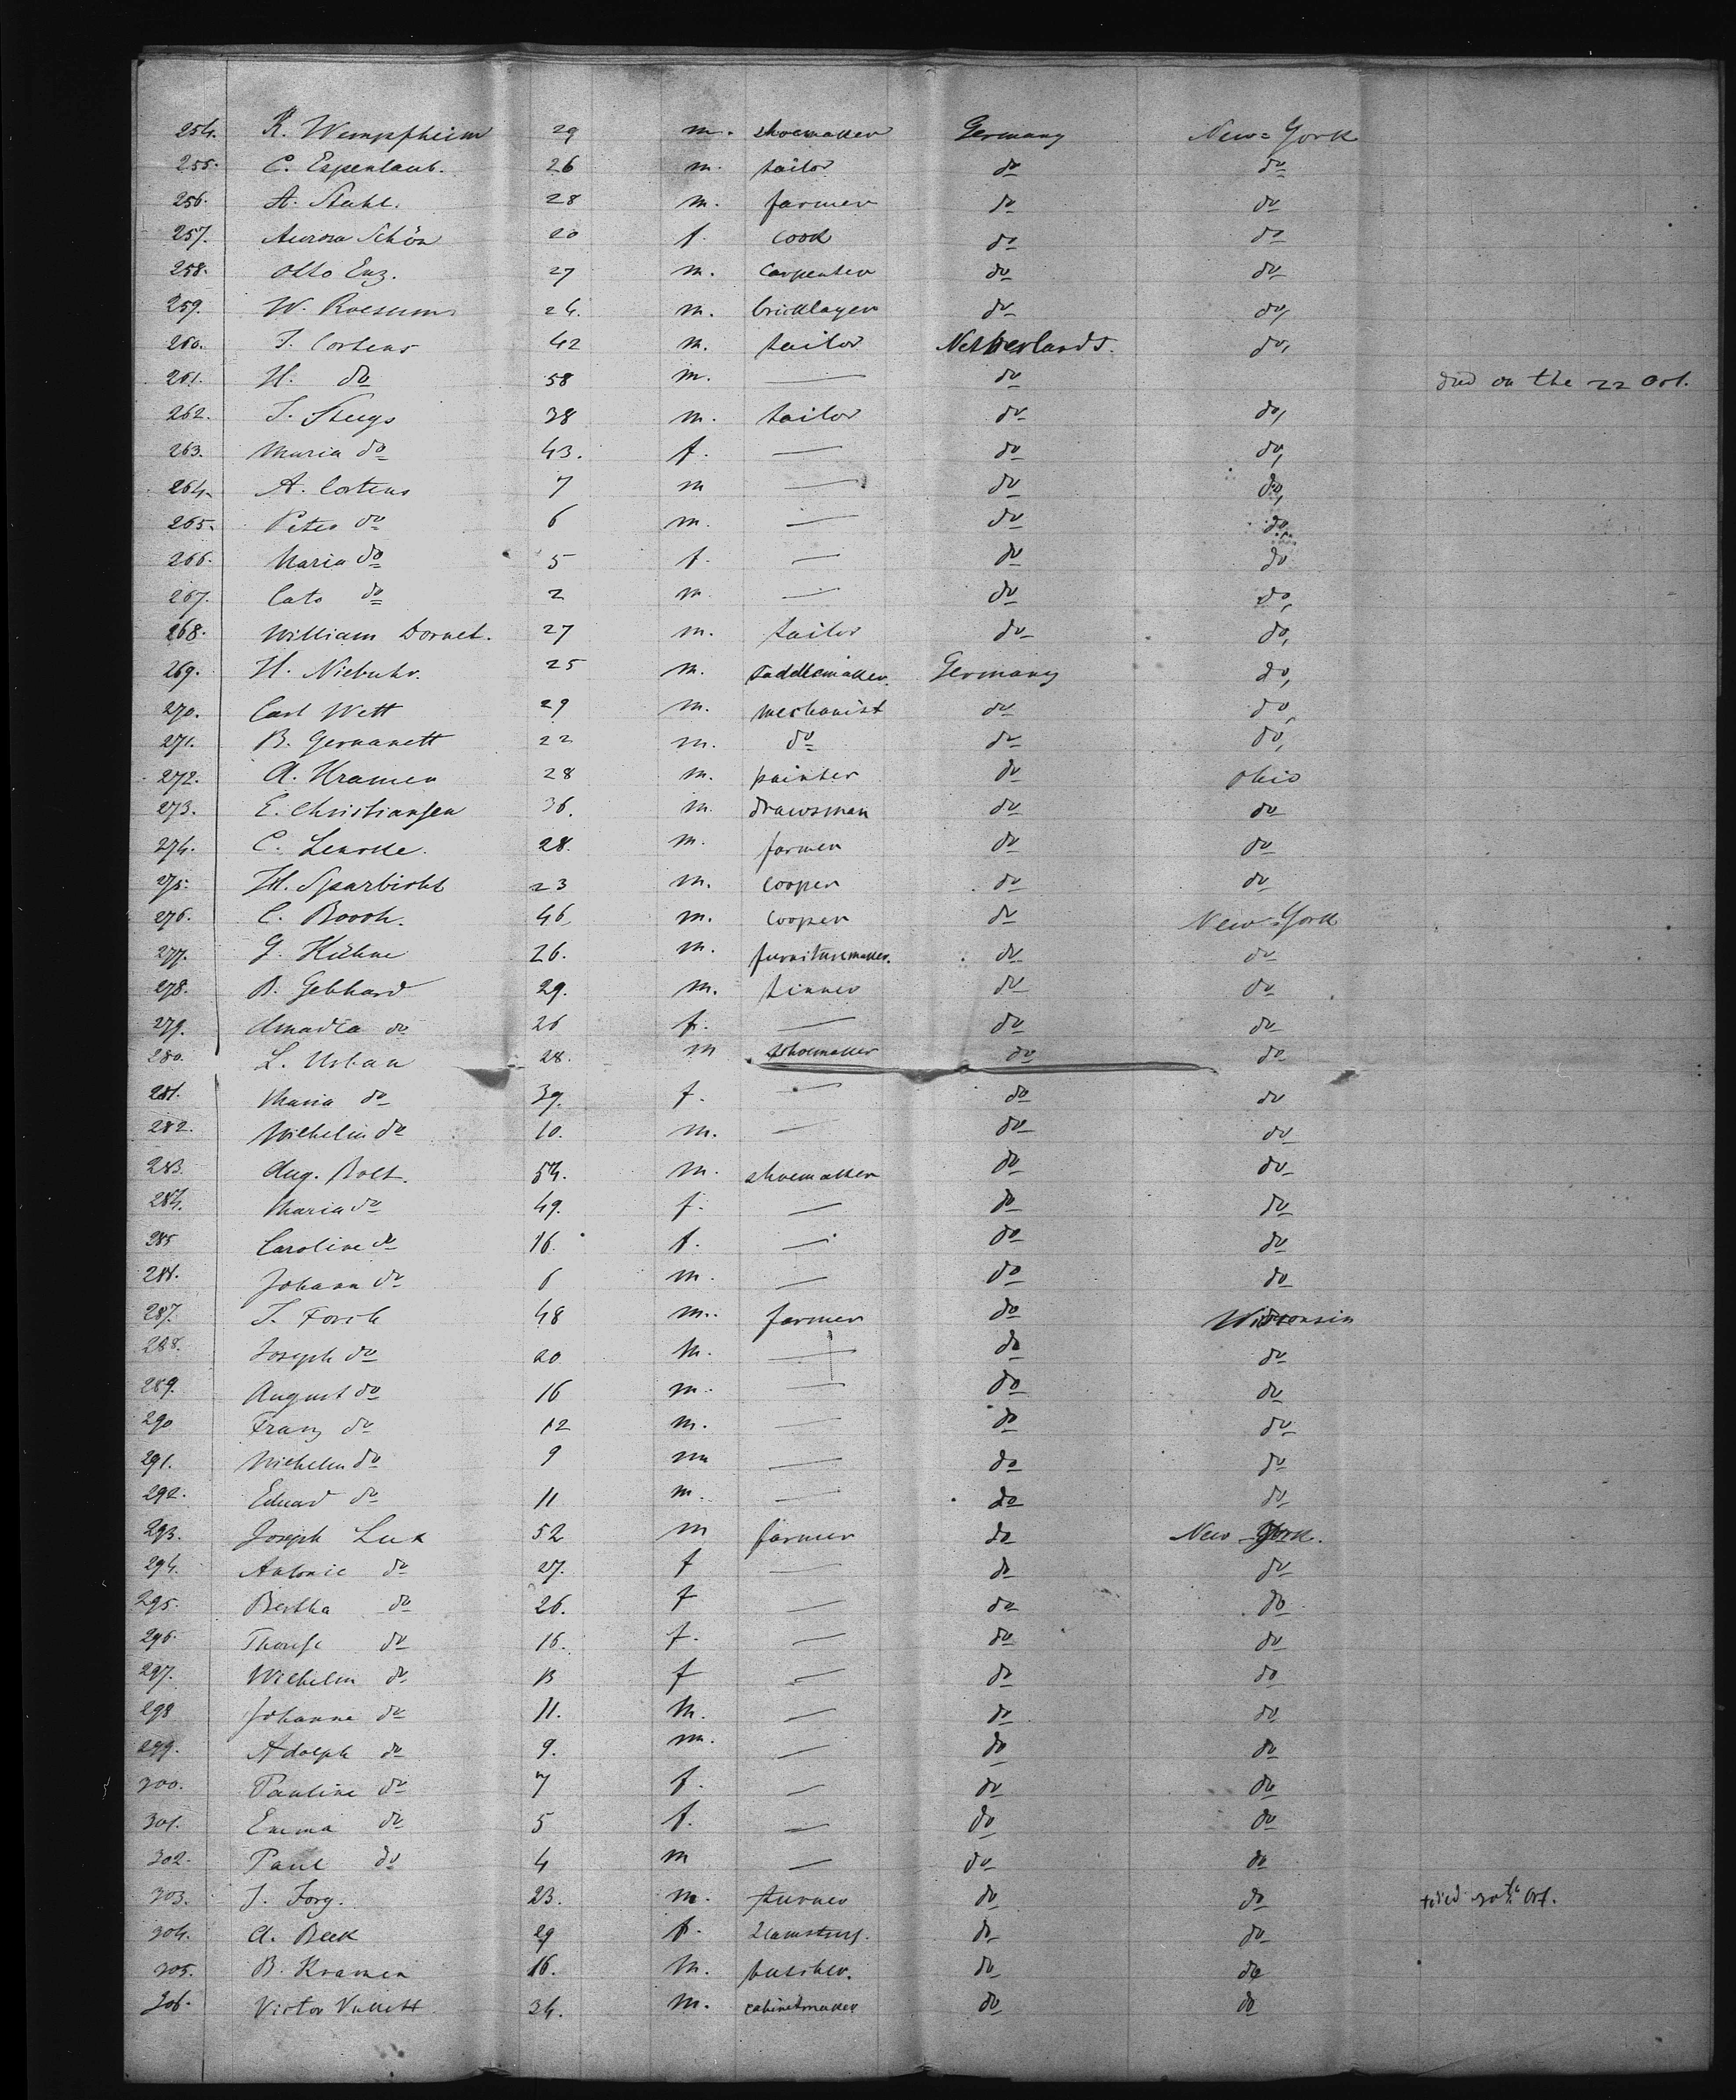 254. R. Wempfheim 29 m. shoemaker Germany New=York
255. C. Espenlaub. 26 m. tailor do do
256. A. Stahl. 28 m. farmer do do
257. Aurora Schön 20 f. cook do do
258. Otto Enz. 27 m. carpenter do do
259. W. 24. m. bricklayer do do,
260. T. Cortens 42 m. tailor Netherlands. do,
261. H. do 58 m. — do died on the 22 Oct.
262. T. Steegs 38 m. tailor do do,
263. Maria do 43. f. — do do,
264. A. Cortens 7 m — do do,
265. Peter do 6 m. — do do,
266. Maria do 5 f. — do do
267. Cato do 2 m. — do do,
268. William Dornet. 27 m. tailor do do,
269. H. Niebuhr. 25 m. saddlemaker. Germany do,
270. Carl Wett 29 m. mechanist do do,
271. B. Germanett 22 m. do do do,
272. A. Kramer 28 m. painter do Ohio
273. E. Christiansen 36. m. drawsman do do
274. C. 28. m. farmer do do
275. H. Sparbicht 23 m. cooper do do
276. C. Booch. 46. m. cooper do New-York
277. G. Kühne 26. m. furnituremaker. do do
278. B. Gebhard 29. m. tinner do do
279. Amadea do 26 f. — do do
280. L. Urban 28. m shoemaker do do
281. Maria do 39. f. — do do
282. Wilhelm do 10. m. — do do
283. Aug. Bolt. 54. m. shoemaker do do
284. Maria do 49. f. — do do
285 Caroline do 16. f. — do do
286. Johann do 6 m. — do do
287. J. Forch 48 m. farmer do Wisconsin
288. Joseph do 20 m. — do do
289. August do 16 m. — do do
290 Franz do 12 m. — do do
291. Wilhelm do 9 m — do do
292. Eduard do 11 m. — do do
293. Joseph Lux 52 m farmer do New-York.
294. Antonie do 27. f — do do
295. Bertha do 26. f — do do
296. Therese do 16. f. — do do
297. Wilhelm do 13 f — do do
298 Johanne do 11. m. — do do
299. Adolph do 9. m. — do do
300. Pauline do 7 f. — do do
301. Emma do 5 f. — do do
302. Paul do 4 m — do do
303. J. Jorg. 23. m. turner do do died 30th Oct.
304. A. Beck 29 f. Seamstress. do do
305. B. Kramer 16. m. butcher. do do
306. Victor 34. m. cabinetmaker do do